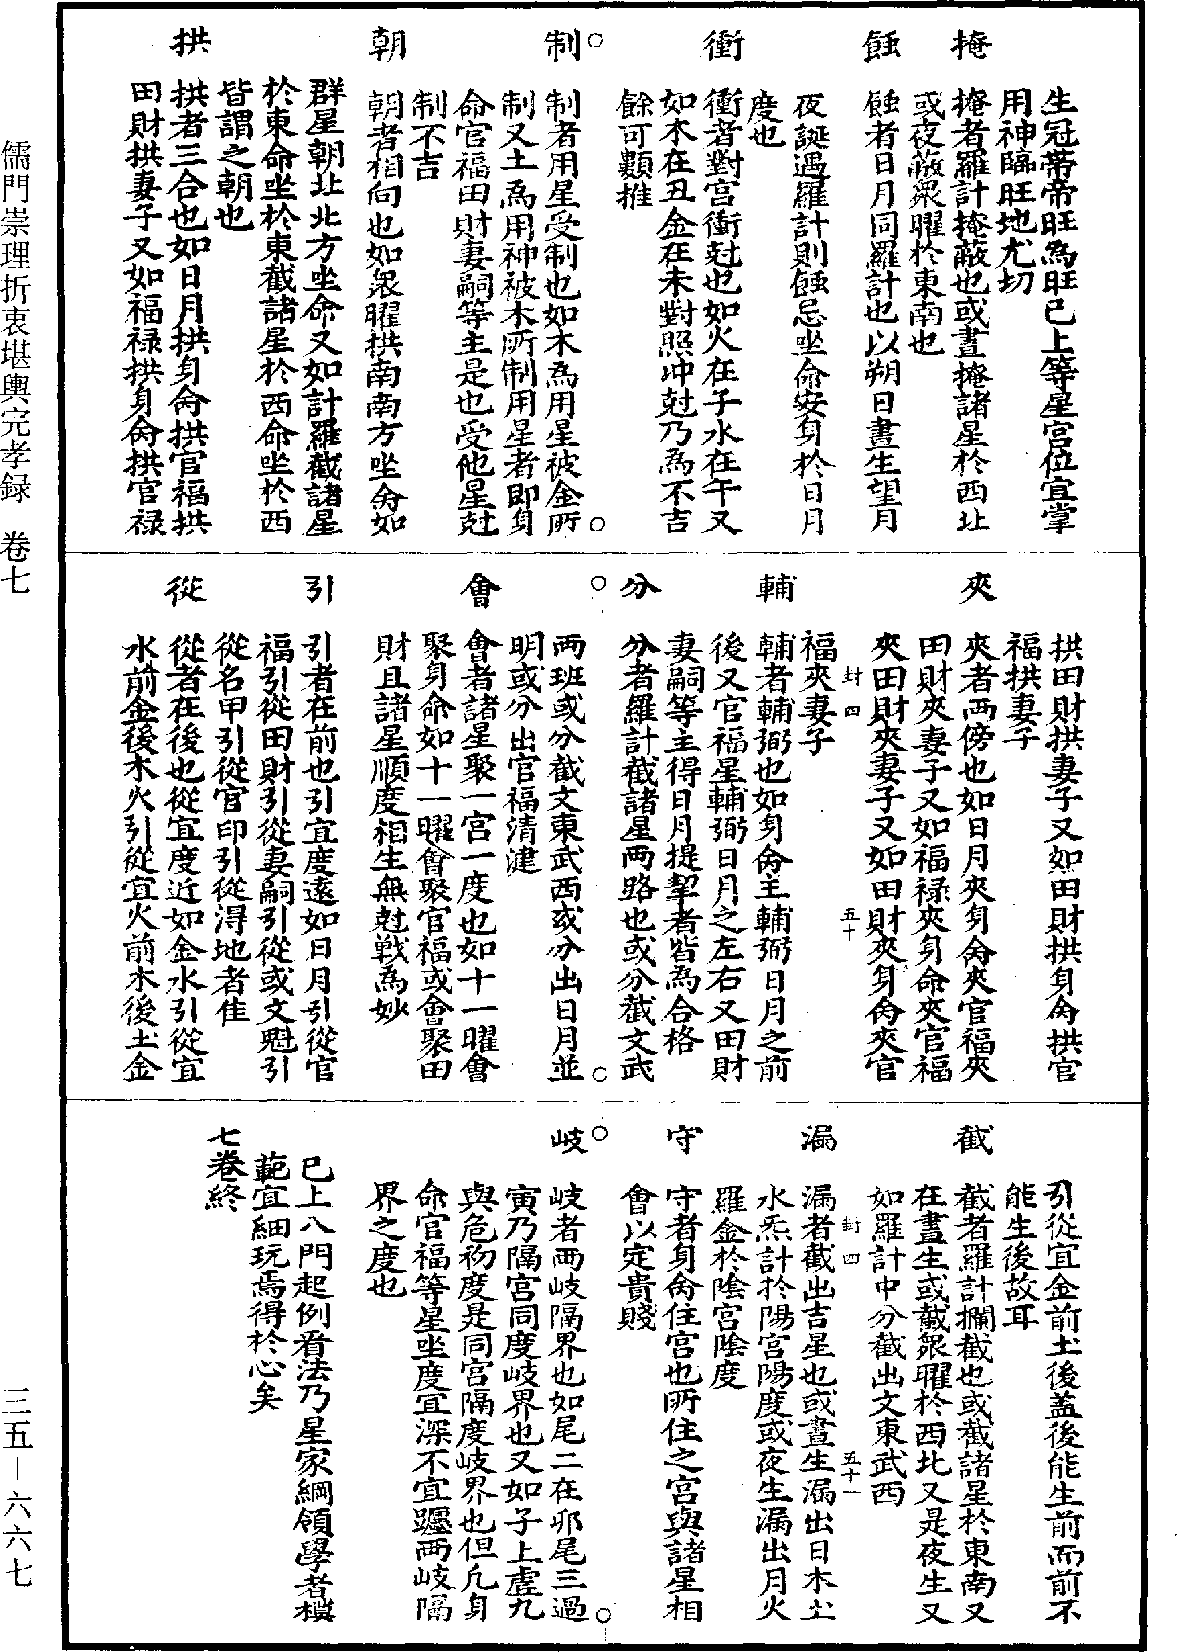 生冠帶帝旺為旺已上等星宮位宜掌
用神臨旺地尤切
掩
掩者羅計掩蔽也或晝掩諸星於西北
或夜蔽衆曜於東南也
蝕
蝕者日月同羅計也以朔日晝生望月
夜誕遇羅計則蝕忌坐命安身於日月
度也
衝
衝者對宮衝尅也如火在子水在午又
如木在丑金在未對照冲尅乃為不吉
餘可類推
制
制者用星受制也如木為用星被金所
制又土為用神被木所制用星者即身
命官福田財妻嗣等主是也受他星尅
制不吉
朝
朝者相向也如衆曜拱南南方坐命如
群星朝北北方坐命又如計羅截諸星
於東命坐於東截諸星於西命坐於西
皆謂之朝也
拱
拱者三合也如日月拱身命拱官福拱
田財拱妻子又如福祿拱身命拱官祿
拱田財拱妻子又如田財拱身命拱官
福拱妻子
夾
夾者兩傍也如日月夾身命夾官福夾
田財夾妻子又如福祿夾身命夾官福
夾田財夾妻子又如田財夾身命夾官
封四 五十
福夾妻子
輔
輔者輔弼也如身命主輔弼日月之前
後又官福星輔弼日月之左右又田財
妻嗣等主得日月提挈者皆為合格
分
分者羅計截諸星兩路也或分截文武
兩班或分截文東武西或分出日月並
明或分出官福清健
會
會者諸星聚一宮一度也如十一曜會
聚身命如十一曜會聚官福或會聚田
財且諸星順度相生無尅戰為妙
引
引者在前也引宜度遠如日月引從官
福引從田財引從妻嗣引從或文魁引
從名甲引從官印引從淂地者佳
從
從者在後也從宜度近如金水引從宜
水前金後木火引從宜火前木後土金
引從宜金前土後蓋後能生前而前不
能生後故耳
截
截者羅計攔截也或截諸星於東南又
在晝生或截衆曜於西北又是夜生又
如羅計中分截出文東武西
封四 五十一
漏
漏者截出吉星也或晝生漏出日木土
水炁計於陽宮陽度或夜生漏出月火
羅金於陰宮陰度
守
守者身命住宮也所住之宮與諸星相
會以定貴賤
岐
岐者兩岐隔界也如尾二在卯尾三過
寅乃隔宮同度岐界也又如子上虛九
與危初度是同宮隔度岐界也但凡身
命官福等星坐度宜深不宜躔兩岐隔
界之度也
已上八門起例看法乃星家綱領學者模
範宜細玩焉得於心矣
七卷終
儒門崇理折衷堪輿完孝録 卷七
三五－六六七